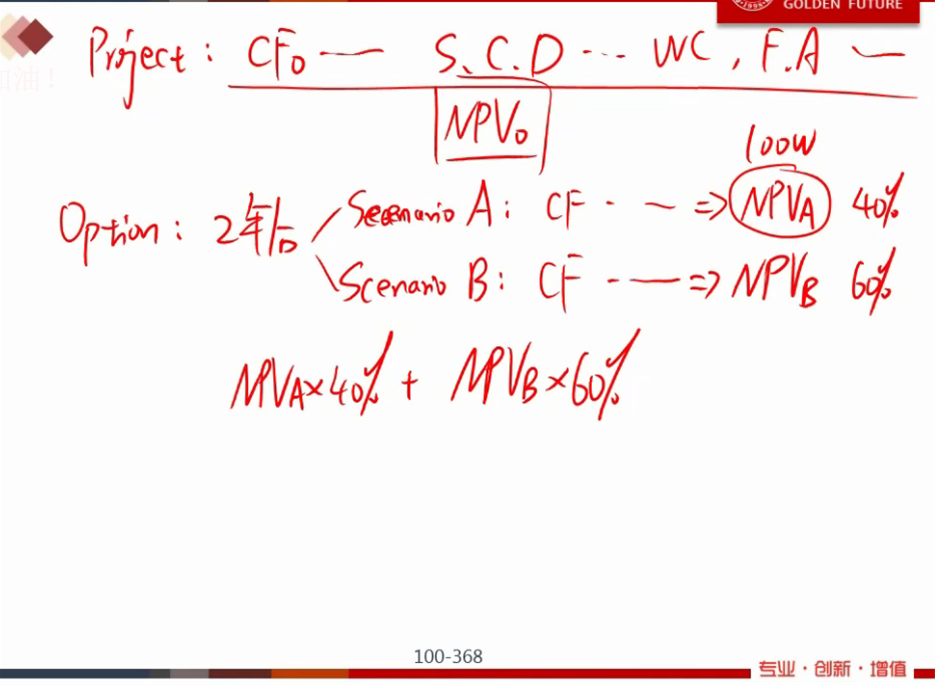 GOLDEN FUTURE
Project: CF₀ — S.C.D ... WC, F.A —
加油!
NPV₀
100W
Option: 2年后
Scenario A: CF · — ⇒ NPVA 40%
Scenario B: CF · — ⇒ NPVB 60%
NPVA×40% + NPVB×60%
100-368
专业·创新·增值